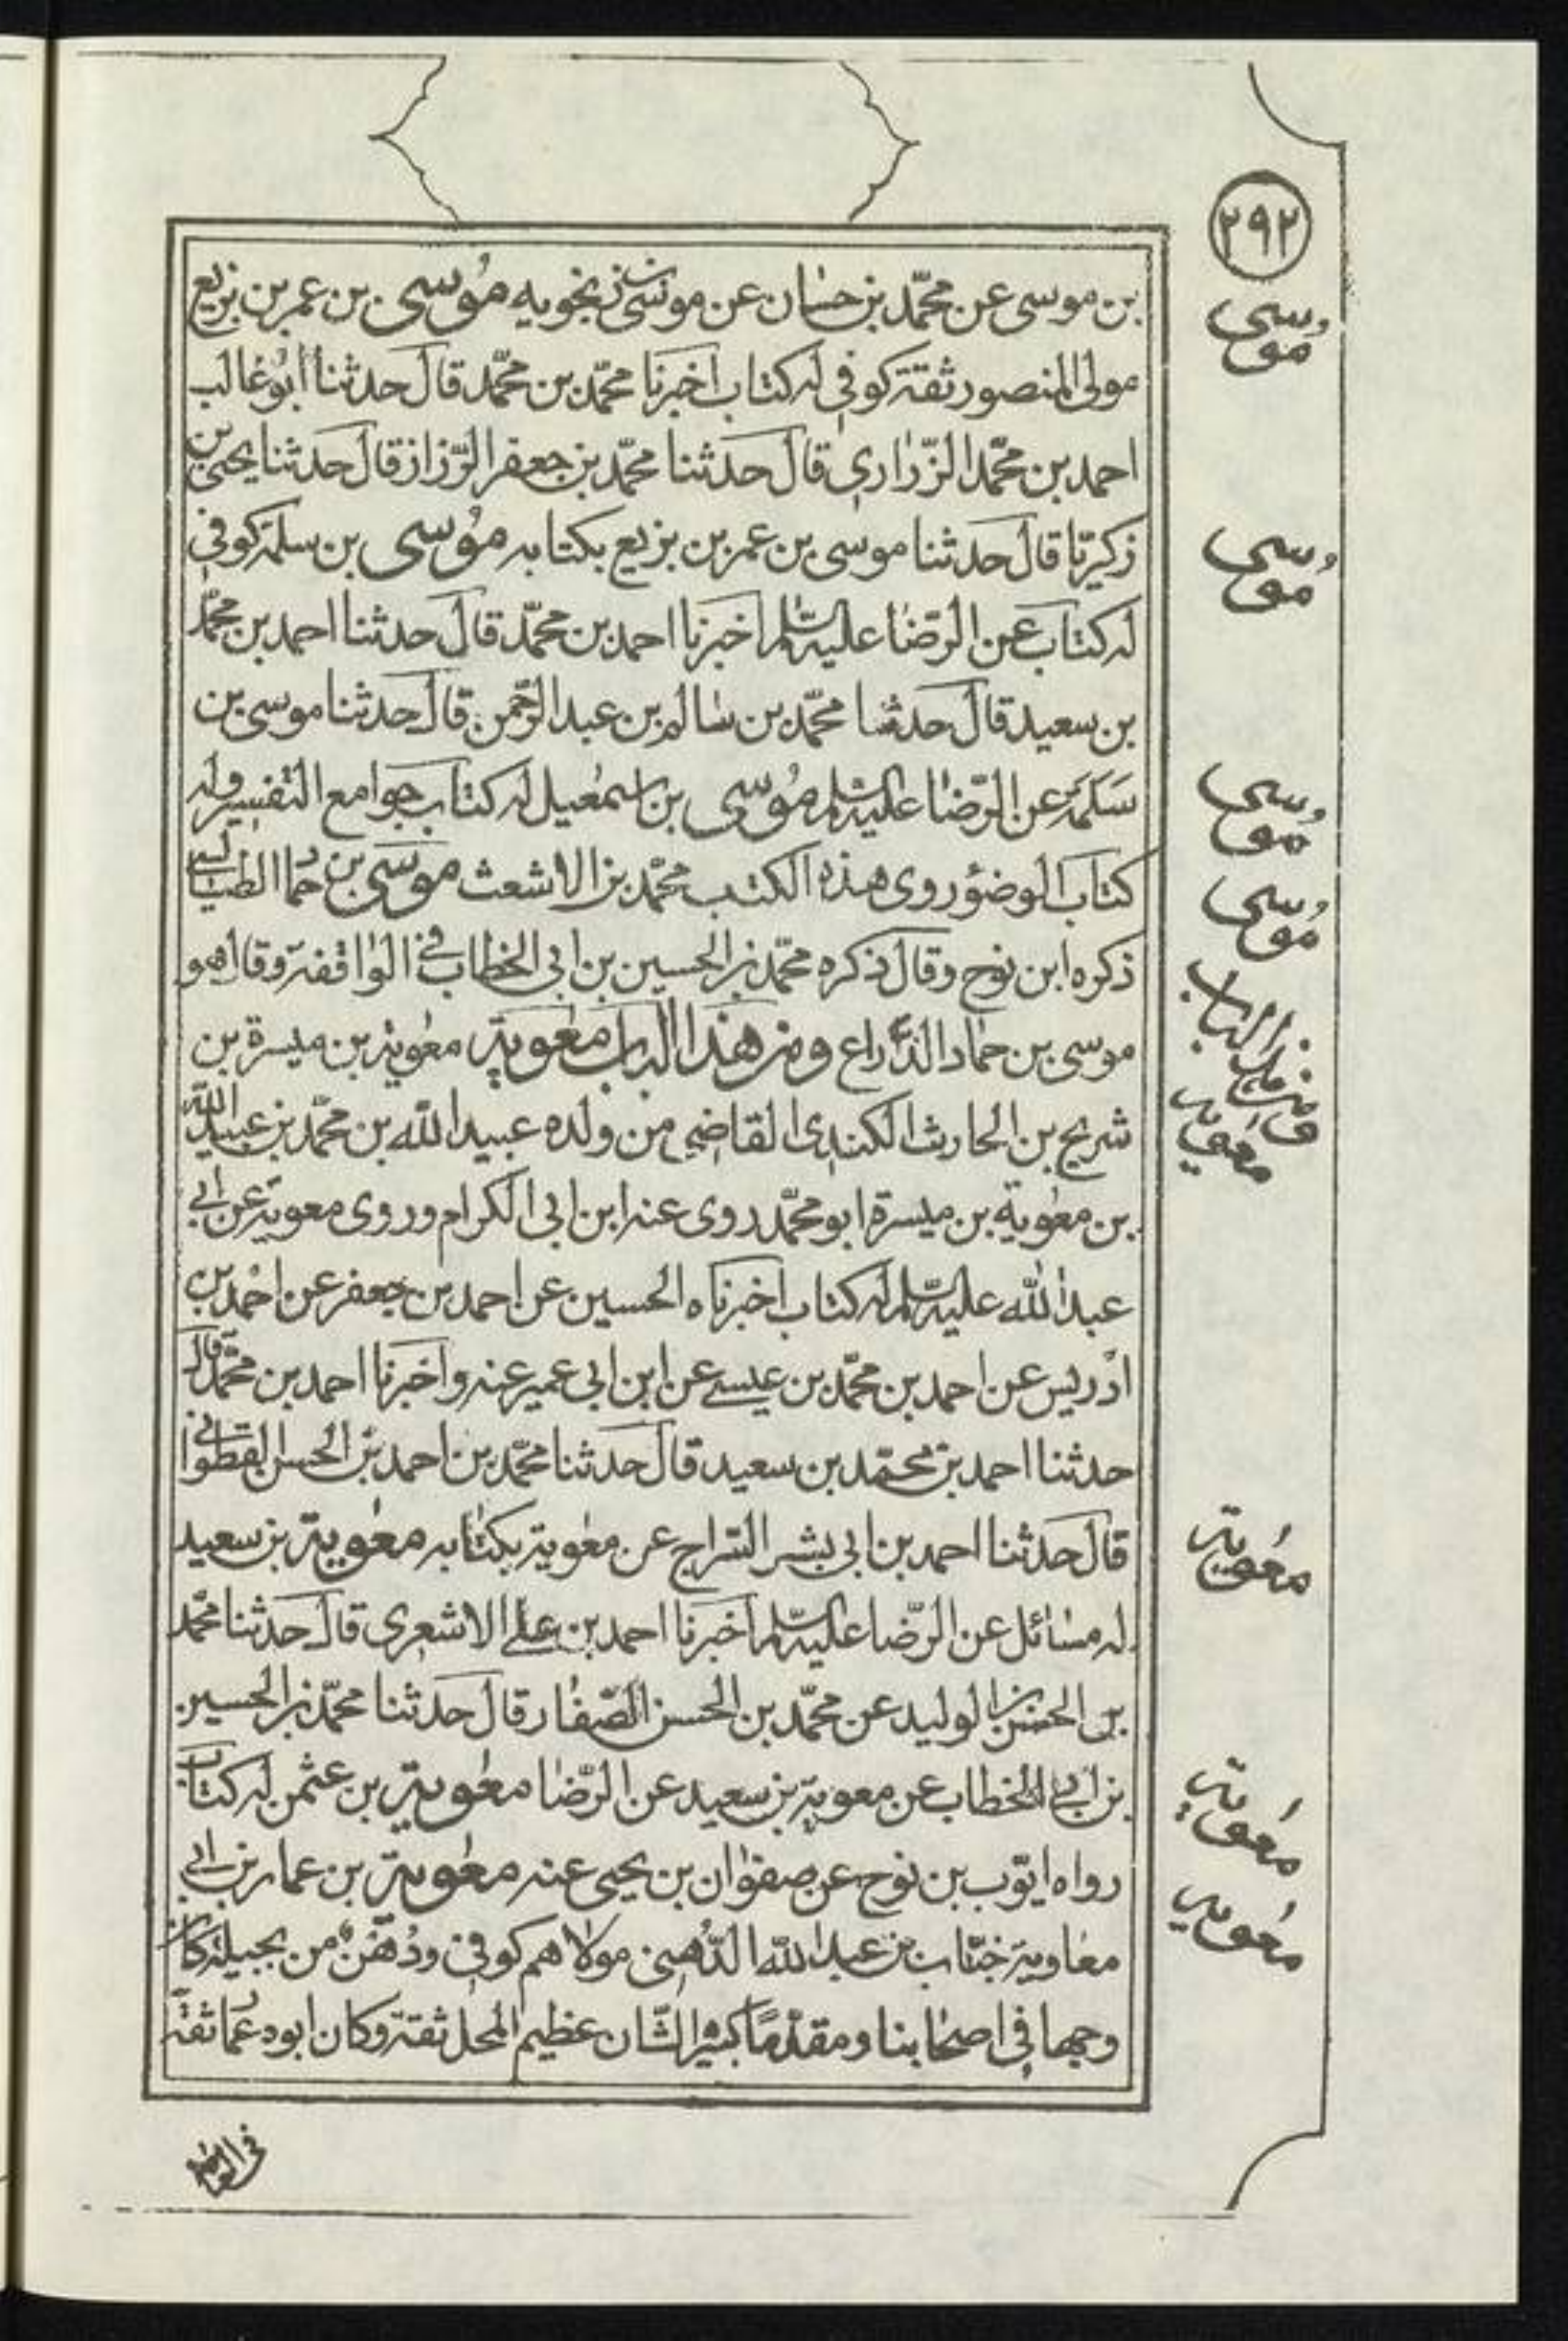 ٢٩٢
بن موسى عن محمّد بن حسان عن موسى بن زنجويه مُوسى بن عمر بن بزيع
مُوسى
مولى المنصور ثقة كوفي له كتاب اخبرنا محمّد بن محمّد قال حدثنا ابو غالب
احمد بن محمّد الزّراري قال حدثنا محمّد بن جعفر الرّزاز قال حدثنا يحيى بن
زكيرّيا قال حدثنا موسى بن عمر بن بزيع بكتابه مُوسى بن سلمة كوفي
مُوسى
له كتاب عن الرّضا عليه السّلم اخبرنا احمد بن محمّد قال حدثنا احمد بن محمّد
بن سعيد قال حدثنا محمّد بن سالم بن عبد الرّحمن قال حدثنا موسى بن
سَلَمَة عن الرّضا عليه السّلم مُوسى بن اسمعيل له كتاب جوامع التفسير وله
مُوسى
كتاب الوضؤ روى هذه الكتب محمّد بن الاشعث موسى بن حماد الطيالسي
مُوسى
ذكره ابن نوح وقال ذكره محمّد بن الحسين بن ابى الخطاب في الواقفة وقال هو
موسى بن حماد الذَّراع ومن هذا الباب معوية معوية بن ميسرة بن
ومن هذا الباب
معوية
شريح بن الحارث الكندى القاضي من ولده عبيد الله بن محمّد بن عبيد اللّه
بن معوية بن ميسرة ابو محمّد روى عنه ابن ابى الكرام وروى معوية عن ابي
عبد الله عليه السّلم له كتاب اخبرناه الحسين عن احمد بن جعفر عن احمد بن
ادريس عن احمد بن محمّد بن عيسى عن ابن ابى عمير عنه واخبرنا احمد بن محمّد قال
حدثنا احمد بن محمّد بن سعيد قال حدثنا محمّد بن احمد بن الحسن القطواني
قال حدثنا احمد بن ابى بشر السّراج عن معوية بكتابه معوية بن سعيد
معوية
له مسائل عن الرّضا عليه السّلم اخبرنا احمد بن علي الاشعرى قال حدثنا محمّد
بن الحسن بن الوليد عن محمّد بن الحسن الصّفار قال حدثنا محمّد بن الحسين
بن ابي الخطاب عن معوية بن سعيد عن الرّضا معوية بن عثمن له كتاب
معوية
رواه ايّوب بن نوح عن صفوان بن يحيى عنه معوية بن عمار بن ابي
معوية
معاوية خبّاب بن عبد الله الدُّهني مولاهم كوفى ودُهْنٌ من بجيلة كان
وجها في اصحابنا ومقدّمًا كبير الشّان عظيم المحل ثقة وكان ابوه عمار ثقة
فى العامة